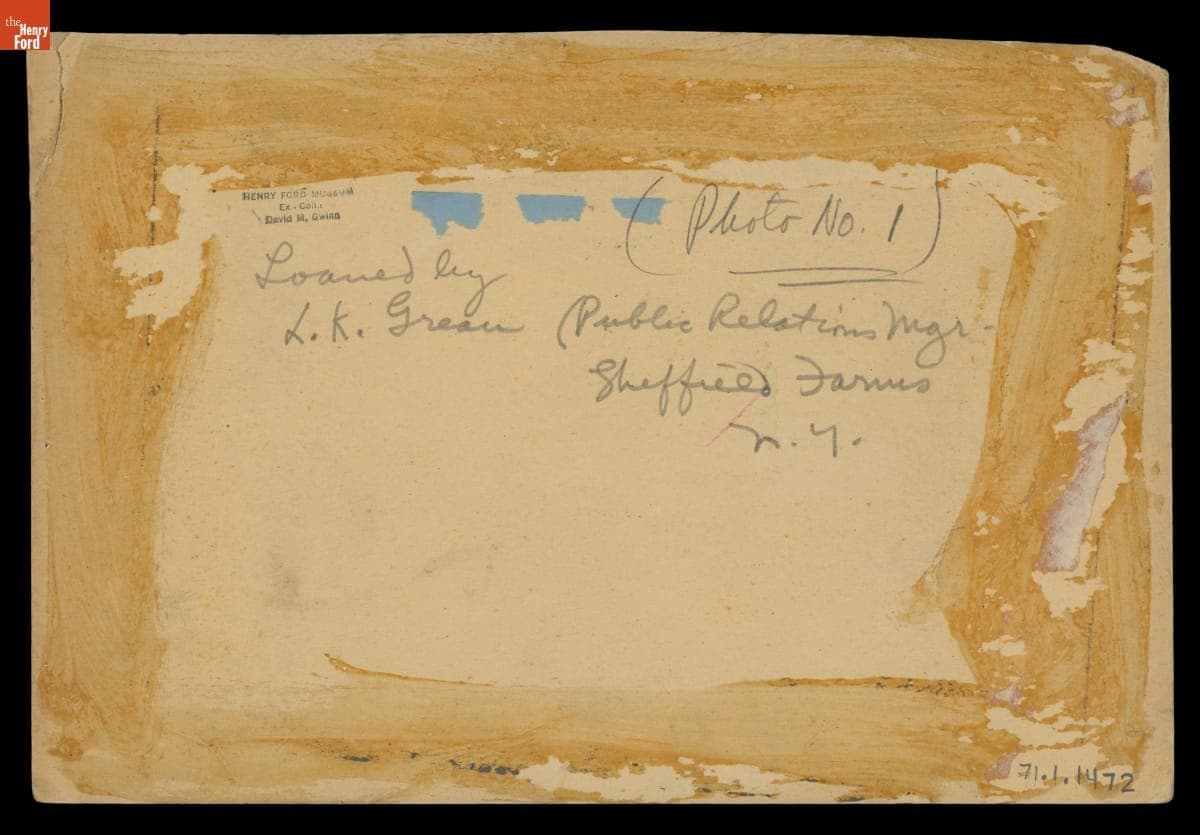 the
Henry
Ford
HENRY FORD MUSEUM
Ex - Coll.:
David M. Gwinn
(Photo No. 1)
Loaned by
L. K. Grean (Public Relations Mgr.
Sheffield Farms
N. Y.
71.1.1472